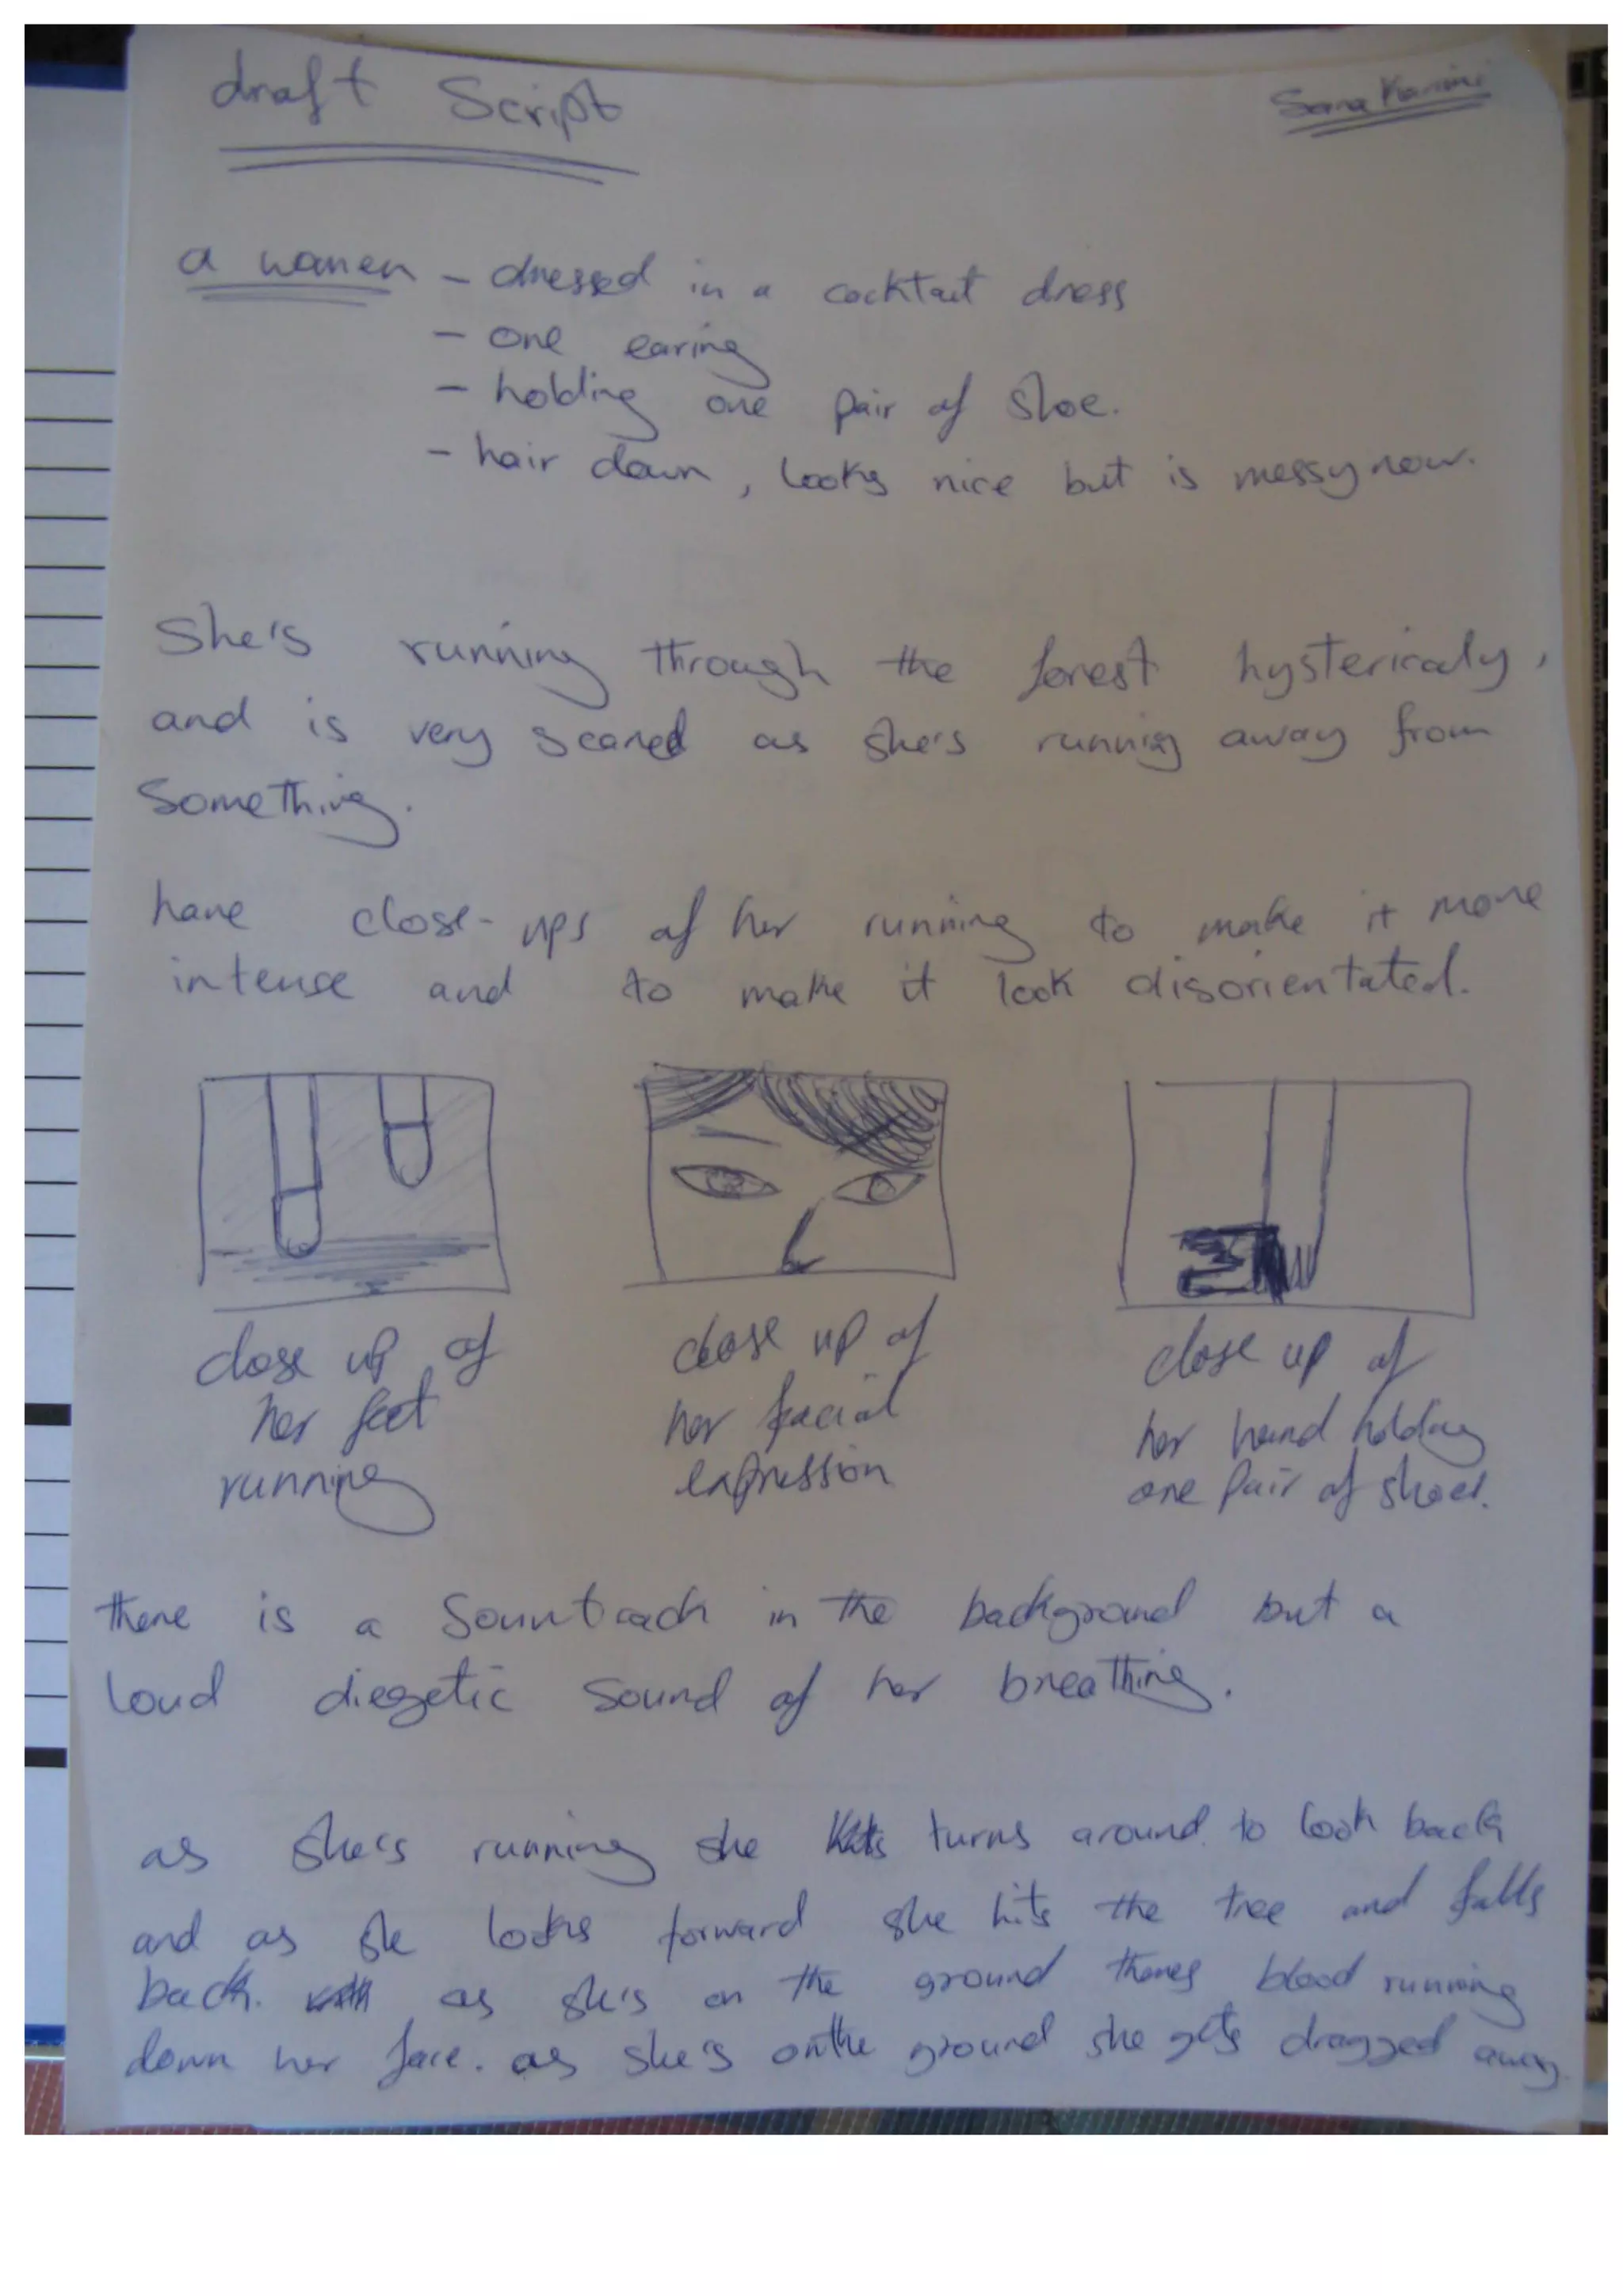 draft Script
Sana Karimi
a women - dressed in a cocktail dress
- one earing
- holding one pair of shoe.
- hair down, looks nice but is messy now.
She's running through the forest hystericaly,
and is very scared as she's running away from
Something.
have close-ups of her running to make it more
intense and to make it look disorientated.
close up of
her feet
running
close up of
her facial
expression
close up of
her hand holding
one pair of shoes.
there is a Sountrack in the background but a
loud diegetic sound of her breathing.
as she's running she turns around to look back
and as she looks forward she hits the tree and falls
back. as she's on the ground theres blood running
down her face. as she's on the ground she gets dragged away.